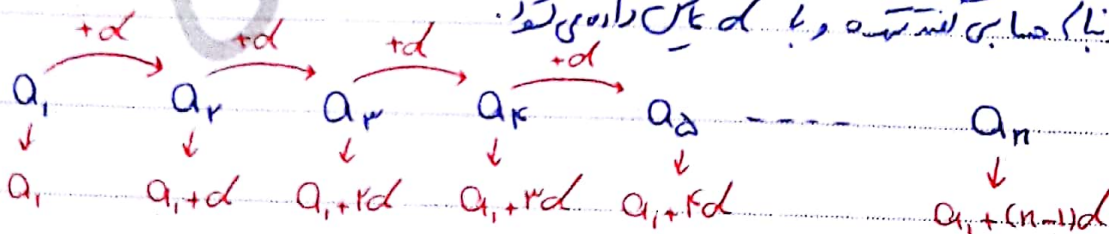 حسابی گفته و با d نمایش داده می‌شود.
+d +d +d +d
a₁ a₂ a₃ a₄ a₅ ---- aₙ
a₁ a₁+d a₁+۲d a₁+۳d a₁+۴d a₁+(n-1)d